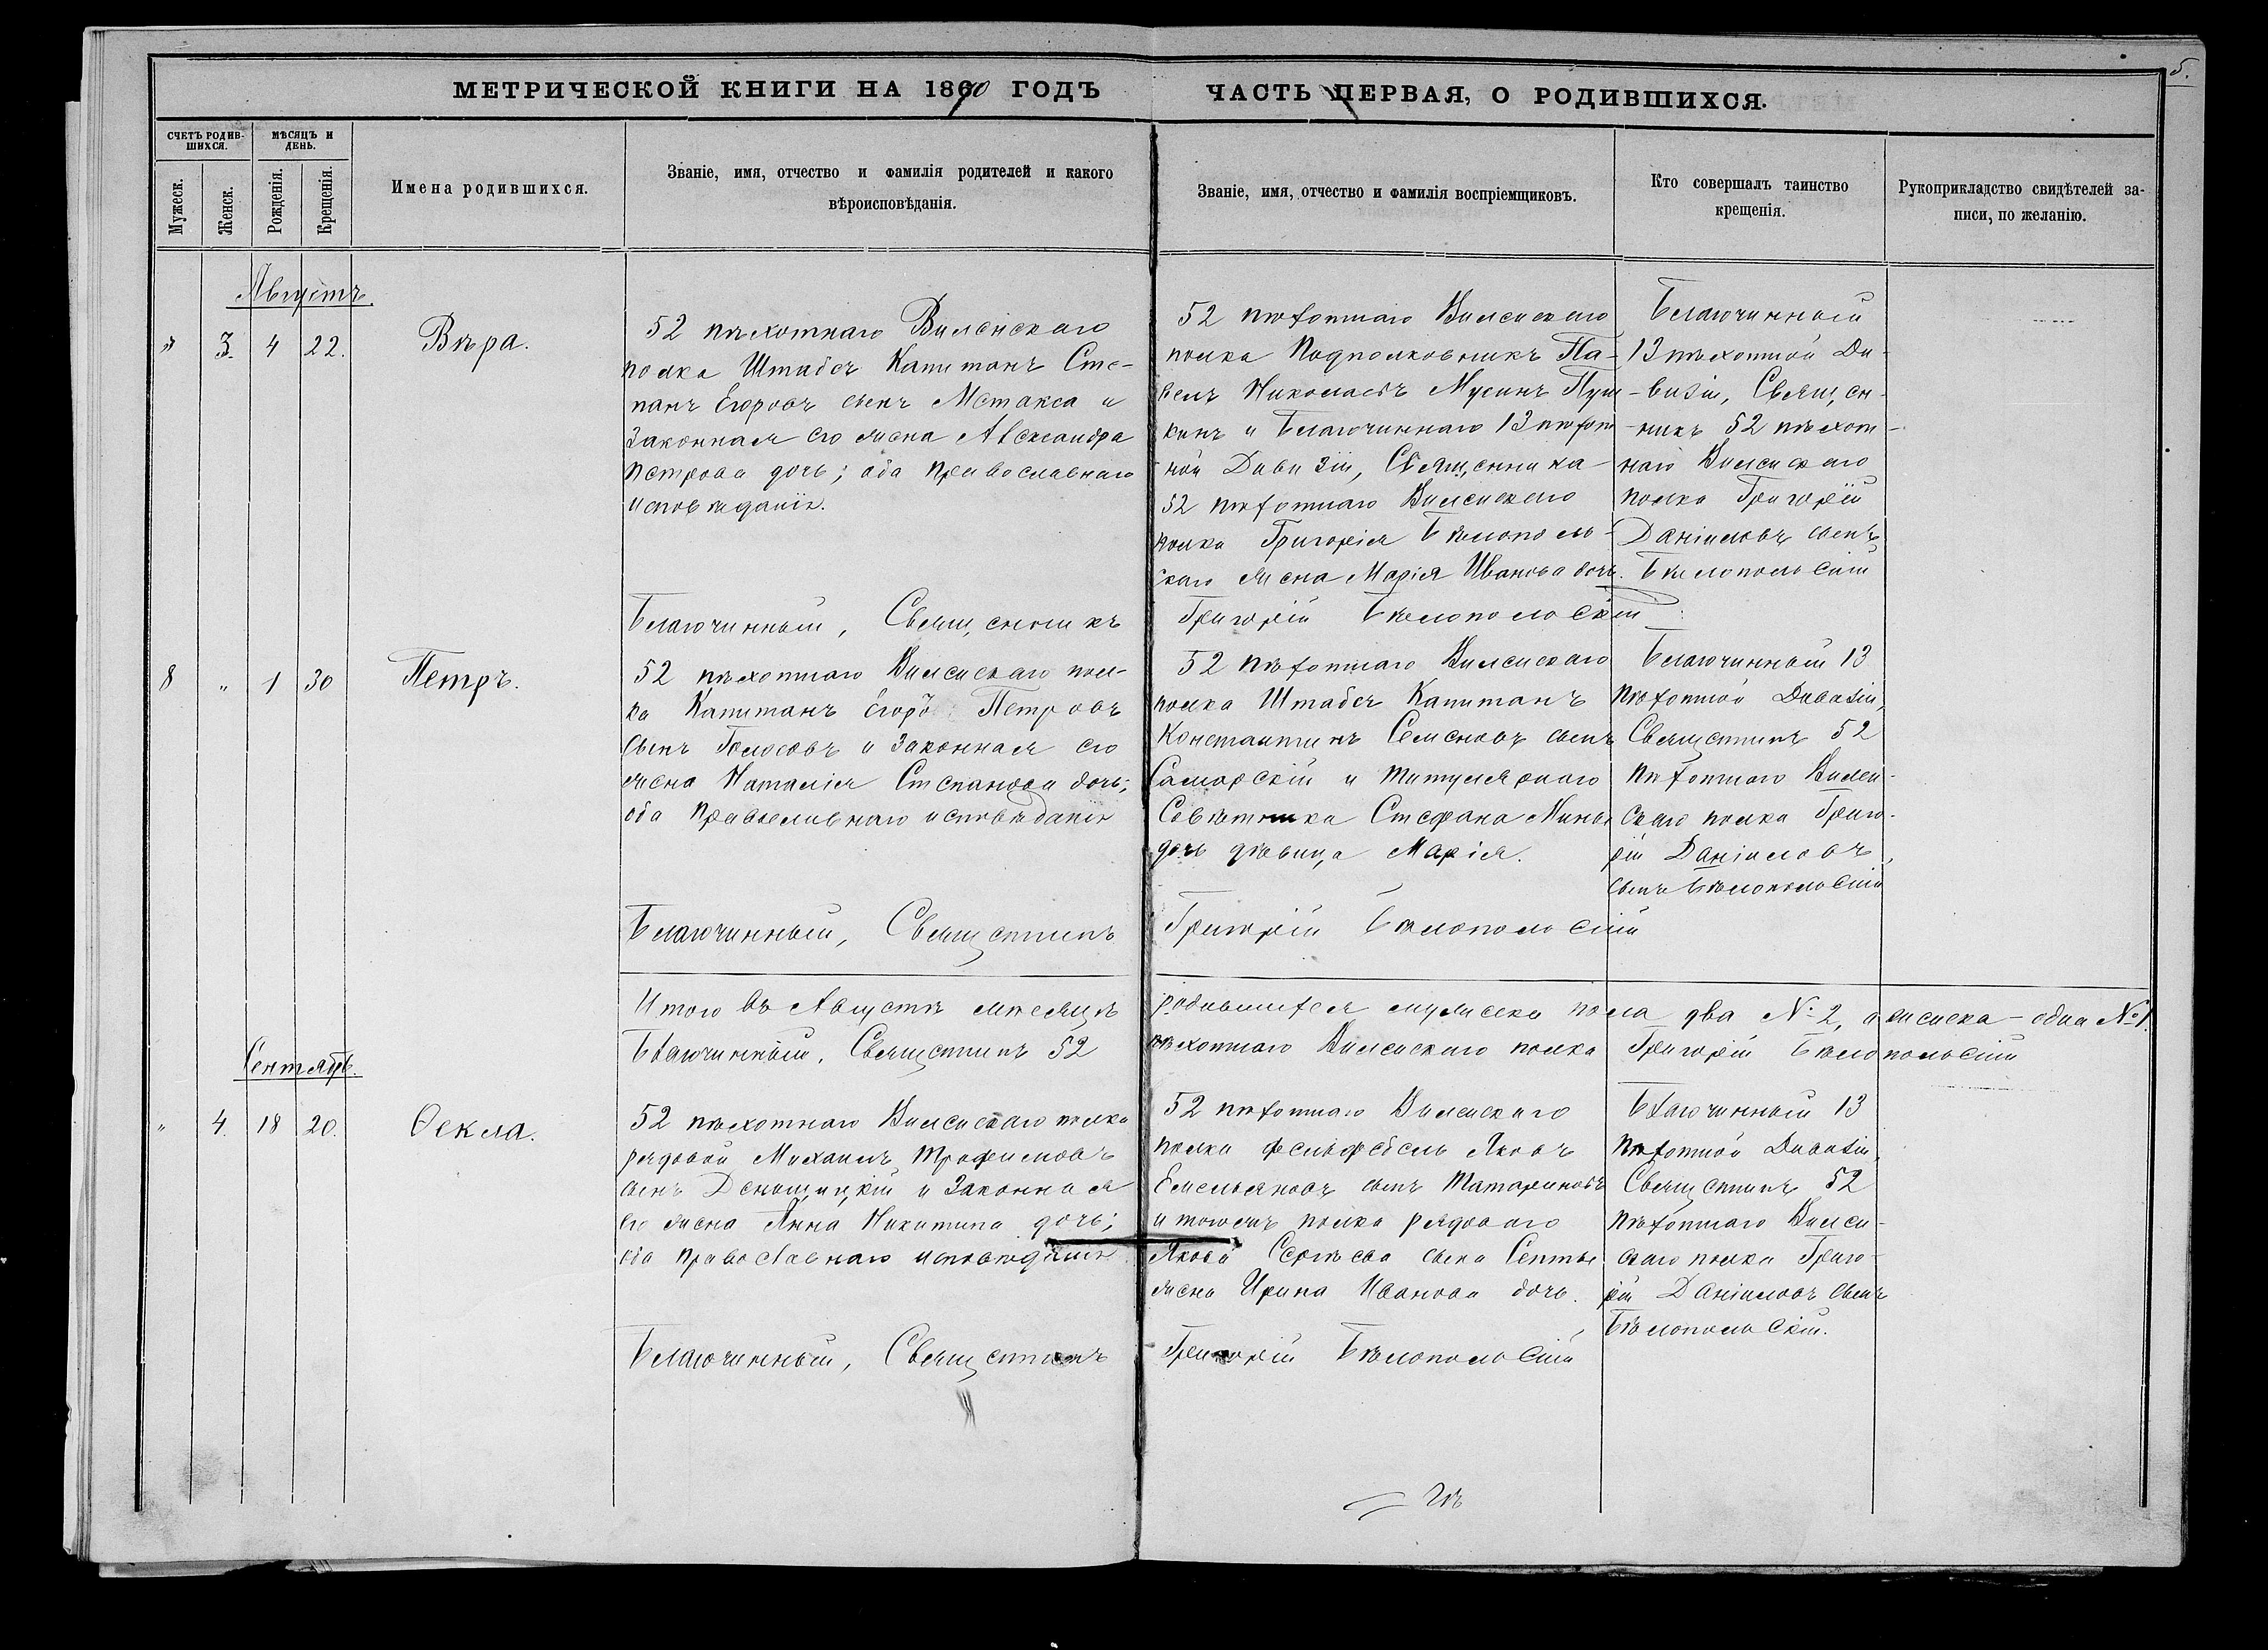 5.
МЕТРИЧЕСКОЙ КНИГИ НА 1890 ГОДЪ
ЧАСТЬ ПЕРВАЯ, О РОДИВШИХСЯ.
СЧЕТЪ РОДИВ-
ШИХСЯ.
МѢСЯЦЪ И
ДЕНЬ.
Мужеск.
Женск.
Рожденія.
Крещенія.
Имена родившихся.
Званіе, имя, отчество и фамилія родителей и какого
вѣроисповѣданія.
Званіе, имя, отчество и фамилія воспріемщиковъ.
Кто совершалъ таинство
крещенія.
Рукоприкладство свидѣтелей за-
писи, по желанію.
Августъ.
" 3. 4 22.
Вѣра.
52 пѣхотнаго Виленскаго
полка Штабсъ Капитанъ Сте-
панъ Егоровъ сынъ Метакса и
законная его жена Александра
Петрова дочь; оба православнаго
исповѣданія.
52 пѣхотнаго Виленскаго
полка Подполковникъ Па-
велъ Николаевъ Мусинъ Пуш-
кинъ и Благочиннаго 13 пѣхот-
ной Дивизіи, Священника
52 пѣхотнаго Виленскаго
полка Григорія Бѣлополь-
скаго жена Марія Иванова дочь.
Благочинный
13 пѣхотной Ди-
-визіи, Священ-
-никъ 52 пѣхот-
наго Виленскаго
полка Григорій
Даніиловъ сынъ
Бѣлопольскій
Благочинный, Священникъ
Григорій Бѣлопольскій
8 " 1 30
Петръ.
52 пѣхотнаго Виленскаго пол-
ка Капитанъ Егоръ Петровъ
сынъ Голосовъ и законная его
жена Наталія Степанова дочь;
оба православнаго исповѣданія
52 пѣхотнаго Виленскаго
полка Штабсъ Капитанъ
Константинъ Семеновъ сынъ
Самарскій и титулярнаго
Совѣтника Стефана
дочь дѣвица Марія.
Благочинный 13
пѣхотной Дивизіи,
Священникъ 52
пѣхотнаго Вилен-
скаго полка Григо-
рій Даніиловъ
сынъ Бѣлопольскій
Благочинный, Священникъ
Григорій Бѣлопольскій
Итого въ Августѣ мѣсяцѣ
родившихся мужеска пола два № 2, а женска - одна № 1.
Благочинный, Священникъ 52
пѣхотнаго Виленскаго полка Григорій Бѣлопольскій
Сентябрь.
" 4. 18 20.
Ѳекла.
52 пѣхотнаго Виленскаго полка
рядовой Михаилъ Трофимовъ
сынъ Денщицкій и законная
его жена Анна Никитина дочь;
оба православнаго исповѣданія
52 пѣхотнаго Виленскаго
полка фельдфебель Яковъ
Емельяновъ сынъ Татариновъ
и тогожъ полка рядоваго
Якова Сергѣева сына
жена Ирина Иванова дочь.
Благочинный 13
пѣхотной Дивизіи,
Священникъ 52
пѣхотнаго Вилен-
скаго полка Григо-
рій Даніиловъ сынъ
Бѣлопольскій.
Благочинный, Священникъ
Григорій Бѣлопольскій